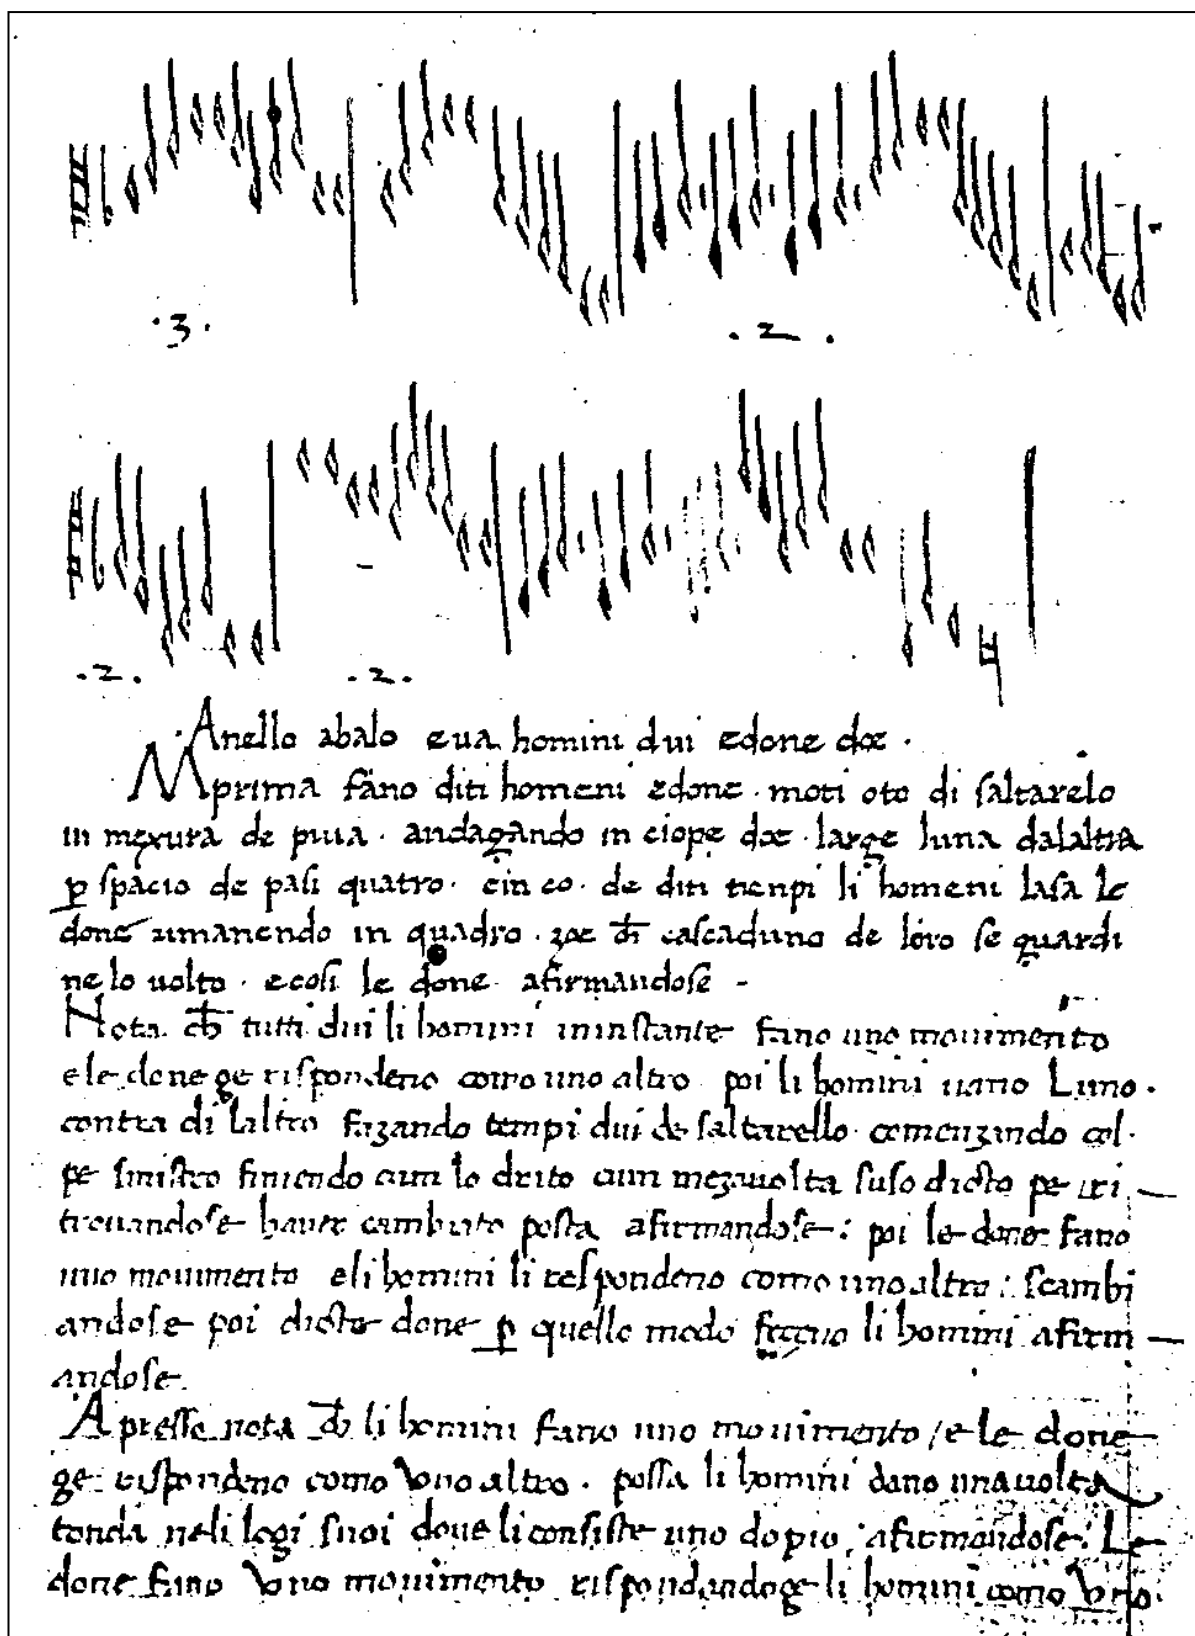 .3. .2.
.2. .2.
Anello abalo e va homini dui e done doe .
Mprima fano diti homeni e done . moti oto di saltarelo
in mexura de piua . andagando in ciope doe . large luna dalaltra
p spacio de pasi quatro . cinco . de diti tienpi li homeni lasa le
done rimanendo in quadro . zoe ch cascaduno de loro se guardi
ne lo uolto . e cosi le done afirmandose -
Nota ch tutti dui li homini in instante fano uno mouimento
e le done ge rispondeno como uno altro poi li homini uano Luno .
contra di laltro fazando tempi dui de saltarello . comenzando col .
pe sinistro finiendo cum lo drito cum mezauolta suso dicto pe iri
trouandose hauer cambiato posta afirmandose : poi le done fano
uno mouimento e li homini li respondeno como uno altro : scambi
andose poi dicte done p quello modo feceno li homini afirm
andose .
Apresso nota ch li homini fano uno mouimento / e le done
ge rispondeno como Vno altro . possa li homini dano una uolta
tonda neli logi suoi doue li consiste uno dopio . afirmandose : Le
done fano Vno mouimento rispondandoge li homini como Vno .